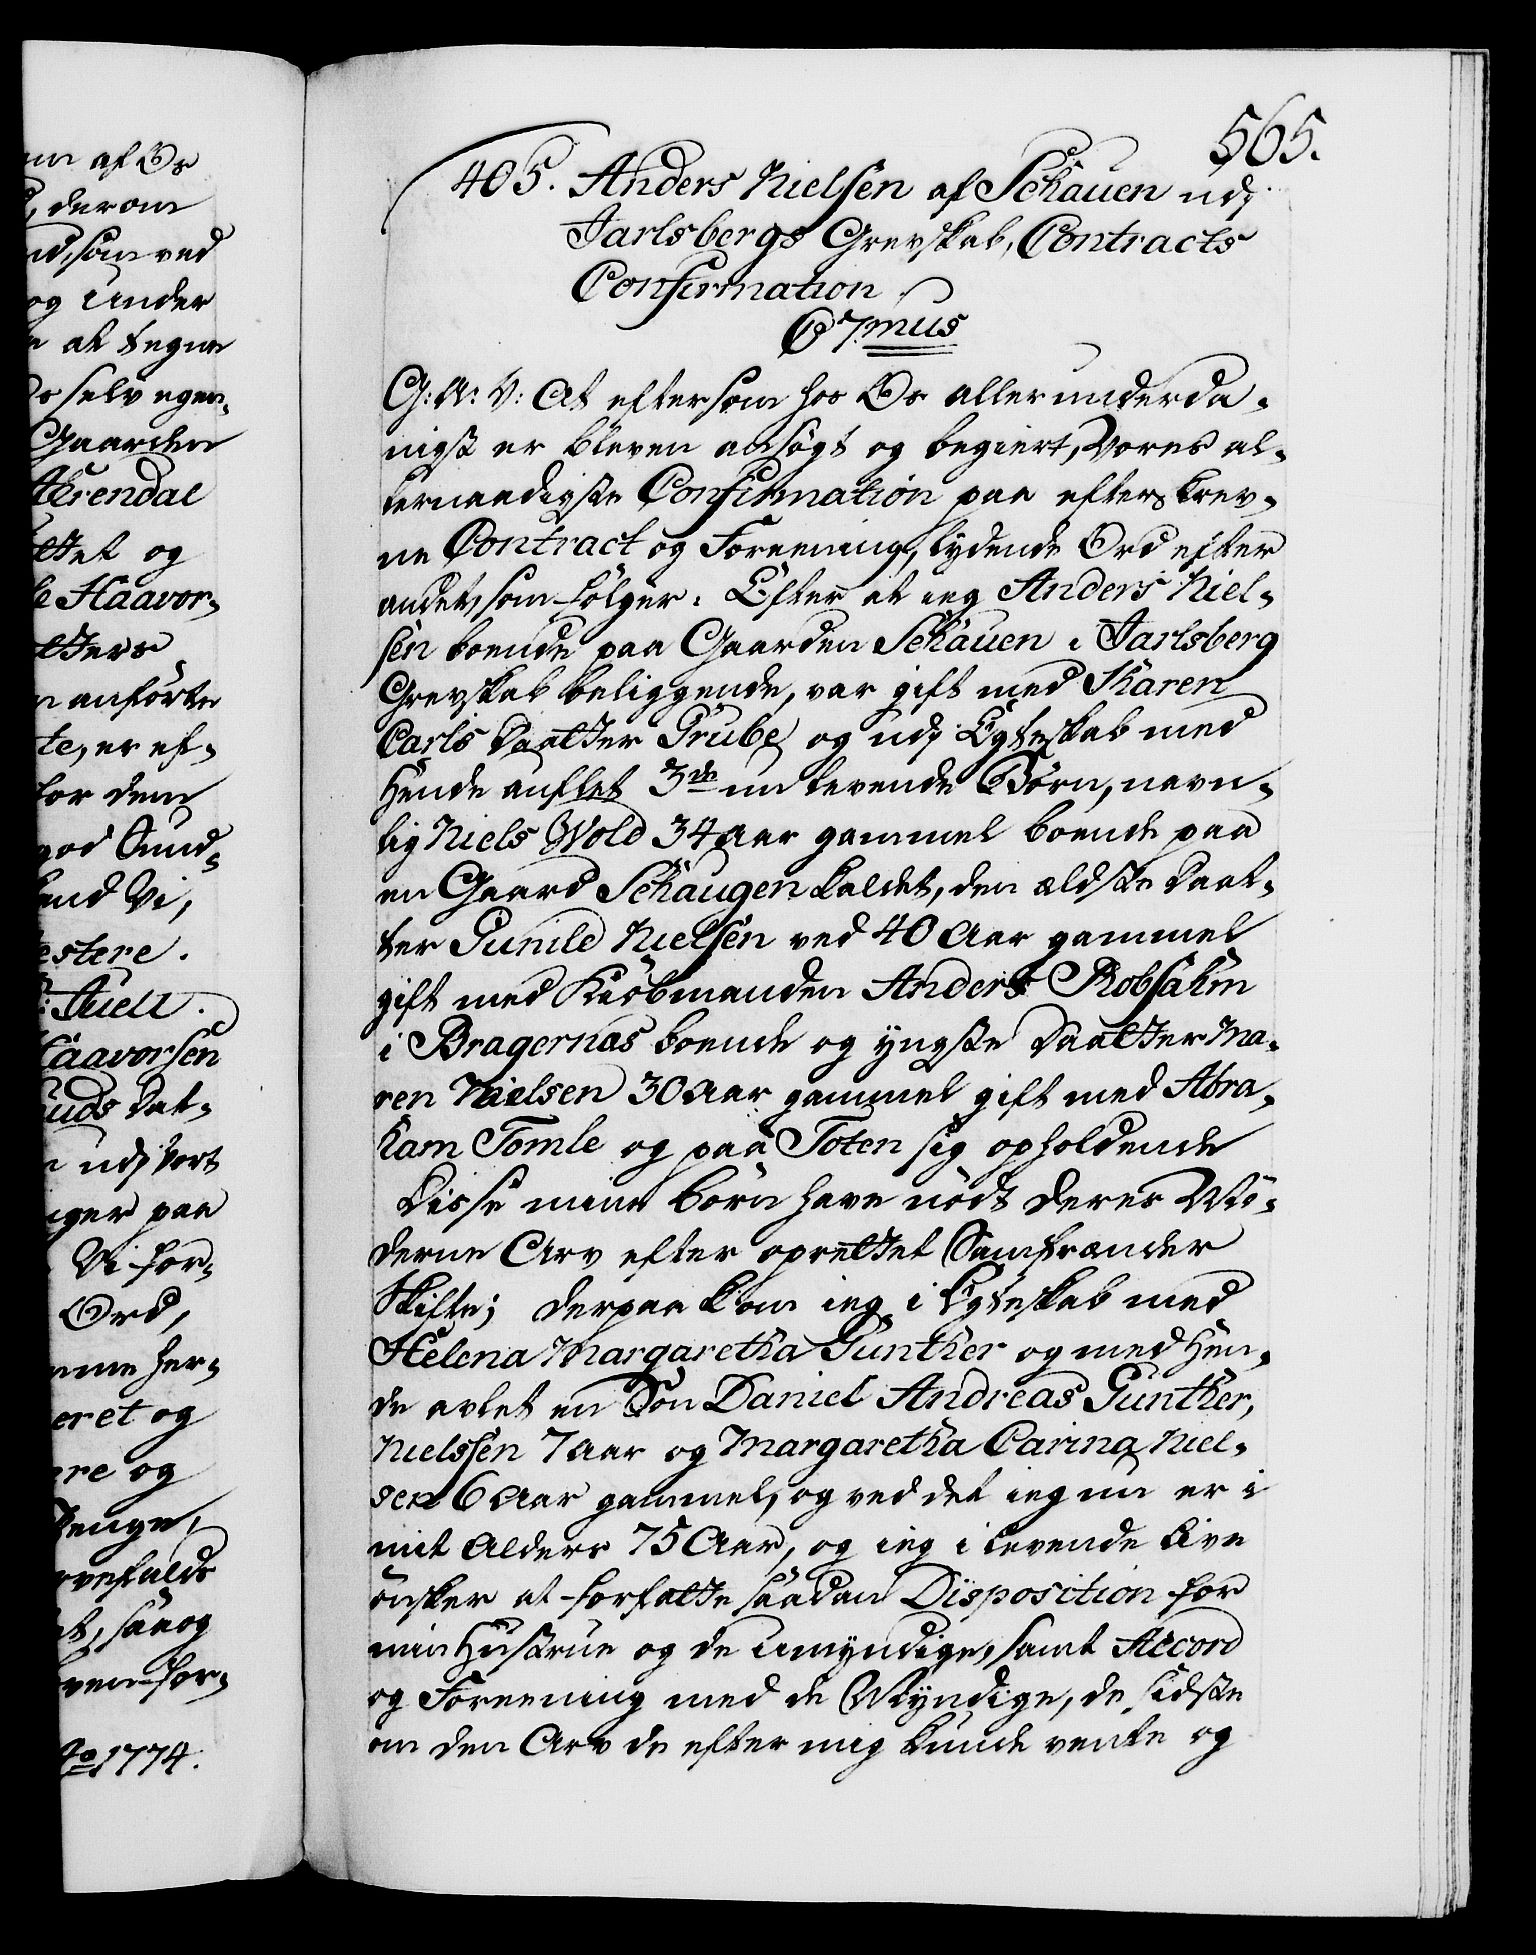 om af Os
derom
nd, som ved
og under
at tegne
selv egen-
Gaarden
Arendal
ttet og
Haavor-
tters
anförte
te, er ef-
for dem
god Sund-
end Vi,
estere.
Juell.
Haavorsen
uds Dat-
udj Vort
iger paa
Vi for-
Ord,
nne her-
eret og
ere og
Penge,
vefalds
t, saaog
ven for-
1774.
565.
405. Anders Nielsen af Schauen udj
Jarlsbergs Grevskab, Contracts
Confirmation
C 7mus
G: A: V: At eftersom hos Os allerunderda-
nigst er bleven ansögt og begiert, Vores al-
lernaadigste Confirmation paa efterskrev-
ne Contract og Foreening, lydende Ord efter
andet, som fölger: Efter at ieg Anders Niel-
sen boende paa Gaarden Schauen i Jarlsberg
Grevskab beliggende, var gift med Karen
Carls Daatter Grube, og udj Egteskab med
Hende auflet 3de nu levende Börn, navn-
lig Niels Wold 34 Aar gammel boende paa
en Gaard Schaugen kaldet, den ældste Daat-
ter Gunild Nielsen ved 40 Aar gammel
gift med Kiöbmanden Anders Robsahm
i Bragernæs boende og yngste Daatter Ma-
ren Nielsen 30 Aar gammel gift med Abra-
ham Tomle og paa Toten sig opholdende
Disse mine börn have nödt deres Mö-
derne Arv efter oprettet Samfrænder
Skifte; derpaa kom ieg i Egteskab med
Helena Margaretha Gunther og med Hen-
de avlet en Sön Daniel Andreas Gunther,
Nielssen 7 Aar og Margaretha Carina Niel-
sen 6 Aar gammel, og ved det ieg nu er i
mit Alders 75 Aar, og ieg i levende Live
önsker at forfatte saadan Disposition for
min Hustrue og de umyndige, samt Accord
og Foreening med de Myndige, de sidste
om den Arv de efter mig kunde vente og